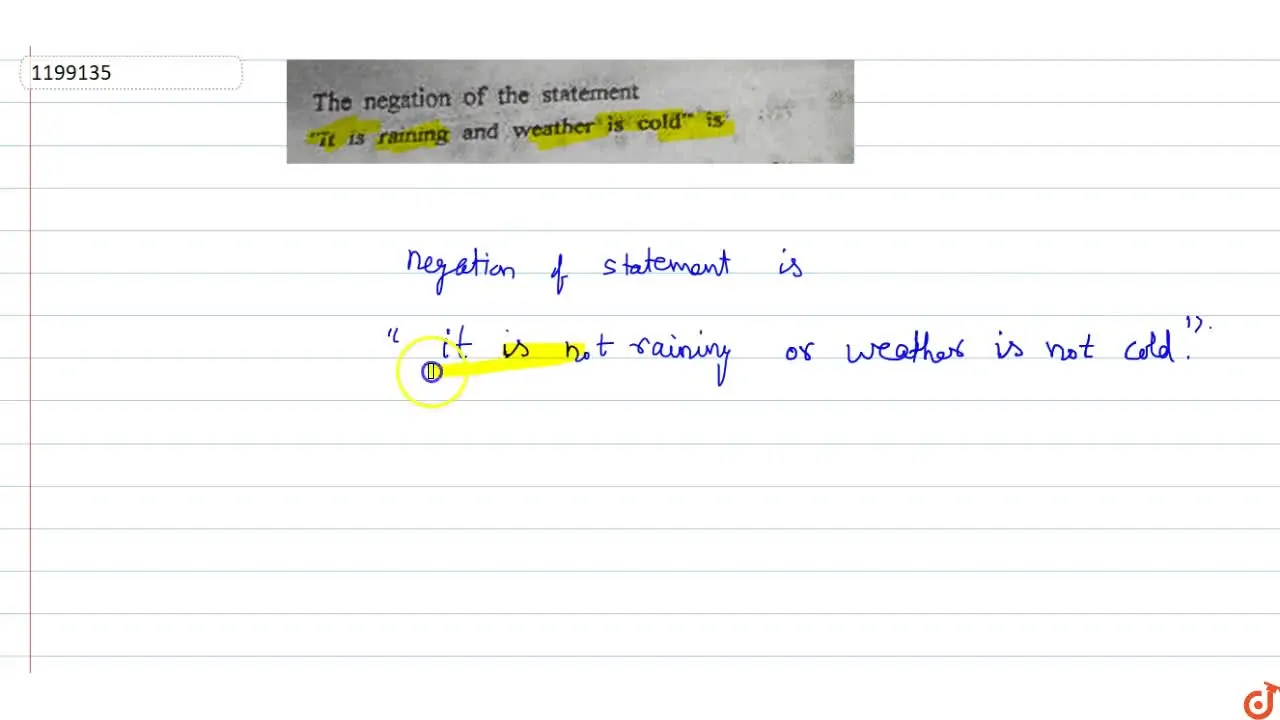 1199135
The negation of the statement
"It is raining and weather is cold" is
negation of statement is
" it is not raining or weather is not cold.".